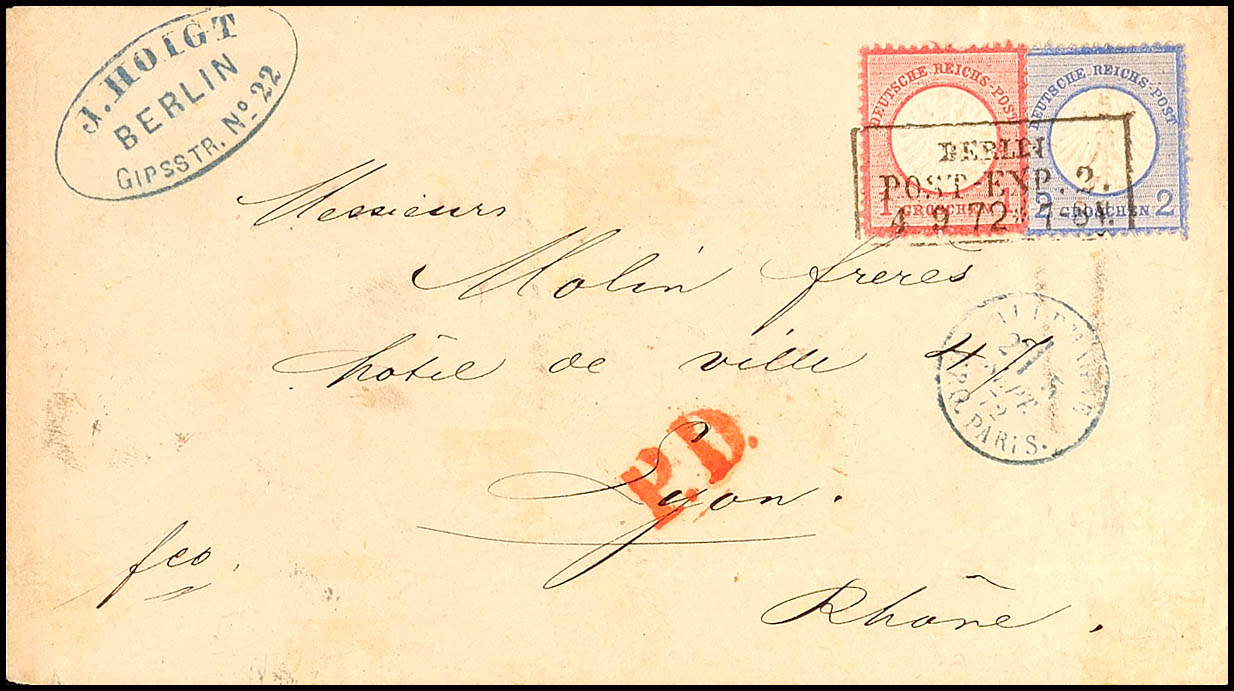 J. HOIGT
BERLIN
GIPSSTR. No. 22
DEUTSCHE REICHS-POST
1 GROSCHEN 1
DEUTSCHE REICHS-POST
2 GROSCHEN 2
BERLIN
POST EXP. 2.
4 9 72 *
Messieurs
Molin frères
hôtel de ville 47
Lyon.
Rhône.
fco.
P.D.
ALLEMAGNE
SEPT
72
PARIS.